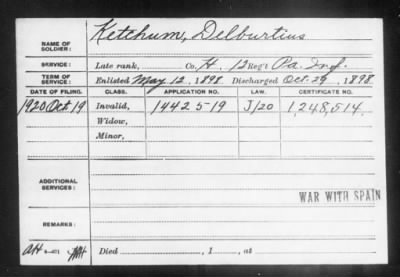 NAME OF SOLDIER: Ketchum, Delburtius
SERVICE: Late rank, Co. H. 12 Reg't Pa. Inf.
TERM OF SERVICE: Enlisted May 12, 1898 Discharged Oct. 29, 1898.
DATE OF FILING. CLASS. APPLICATION NO. LAW. CERTIFICATE NO.
1920 Oct 19 Invalid, 1442519 J/20 1,248,514.
Widow,
Minor,
ADDITIONAL SERVICES:
WAR WITH SPAIN
REMARKS:
Died , 1 , at